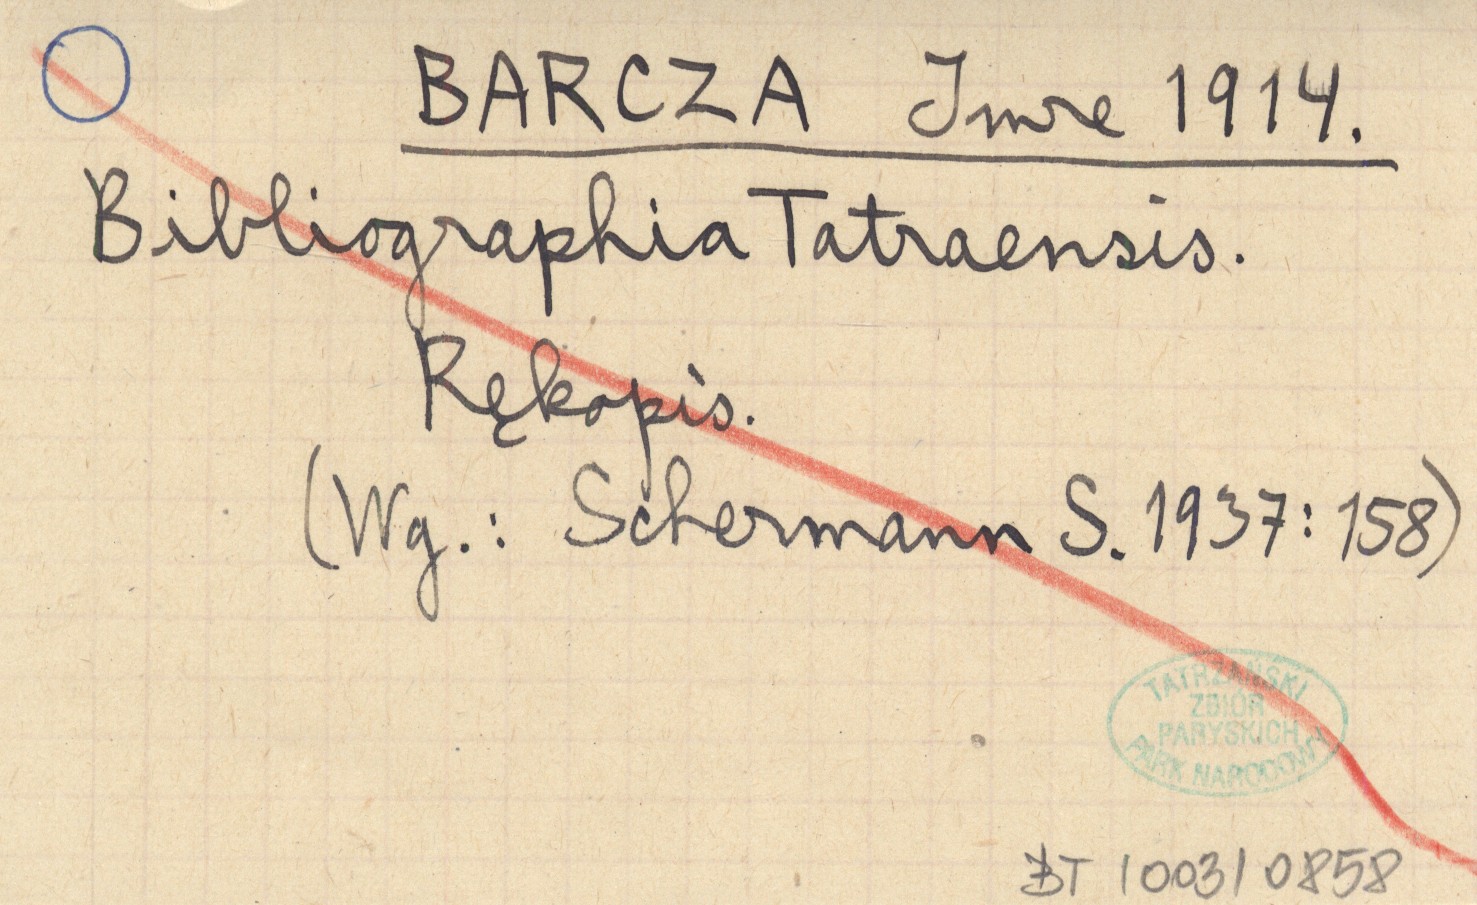 BARCZA Imre 1914.
Bibliographia Tatraensis.
Rękopis.
(Wg.: Schermann S. 1937: 158)
TATRZAŃSKI
ZBIÓR
PARYSKICH
PARK NARODOWY
BT / 003 / 0858